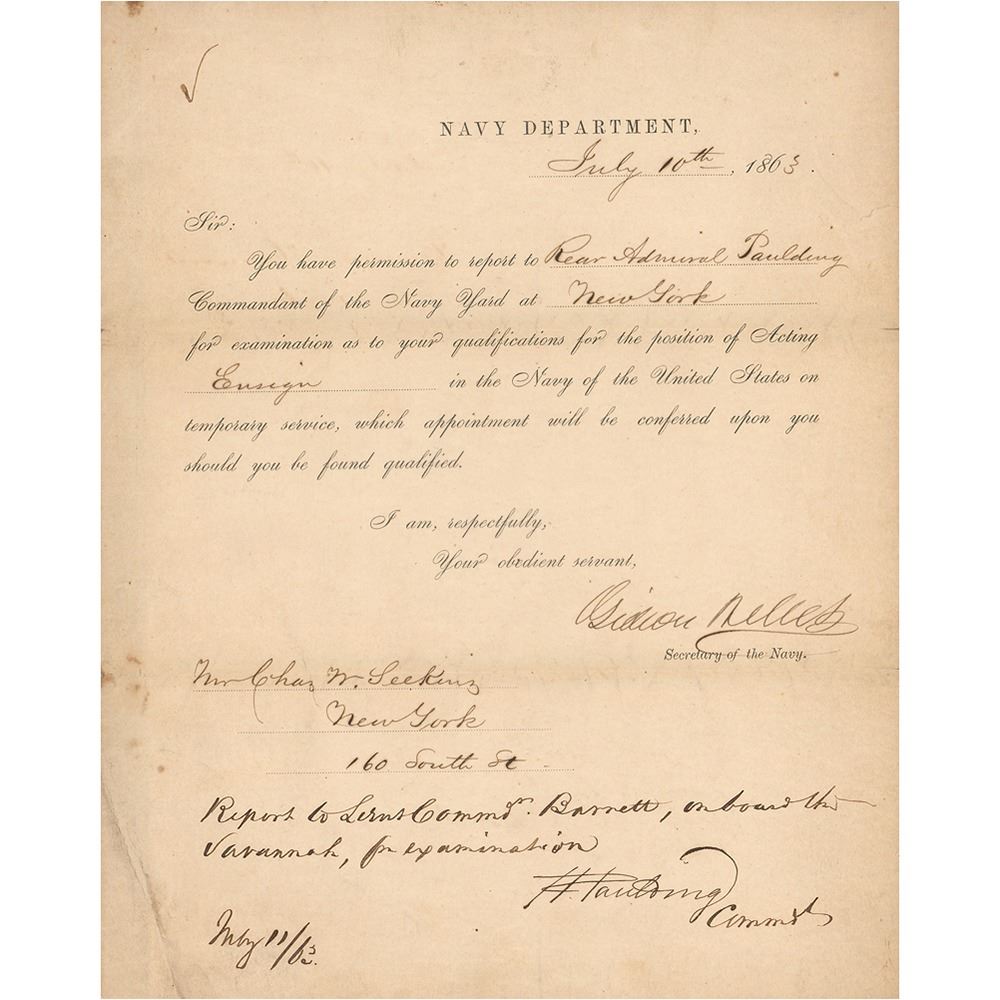 NAVY DEPARTMENT,
July 10th, 1863.
Sir:
You have permission to report to Rear Admiral Paulding
Commandant of the Navy Yard at New York
for examination as to your qualifications for the position of Acting
Ensign in the Navy of the United States on
temporary service, which appointment will be conferred upon you
should you be found qualified.
I am, respectfully,
Your obedient servant,
Gideon Welles
Secretary of the Navy.
Mr Chas W. Seekins
New York
160 South St
Report to Lieut Commdr. Barrett, on board the
Savannah, for examination
H. Paulding
Commdt
11/63.